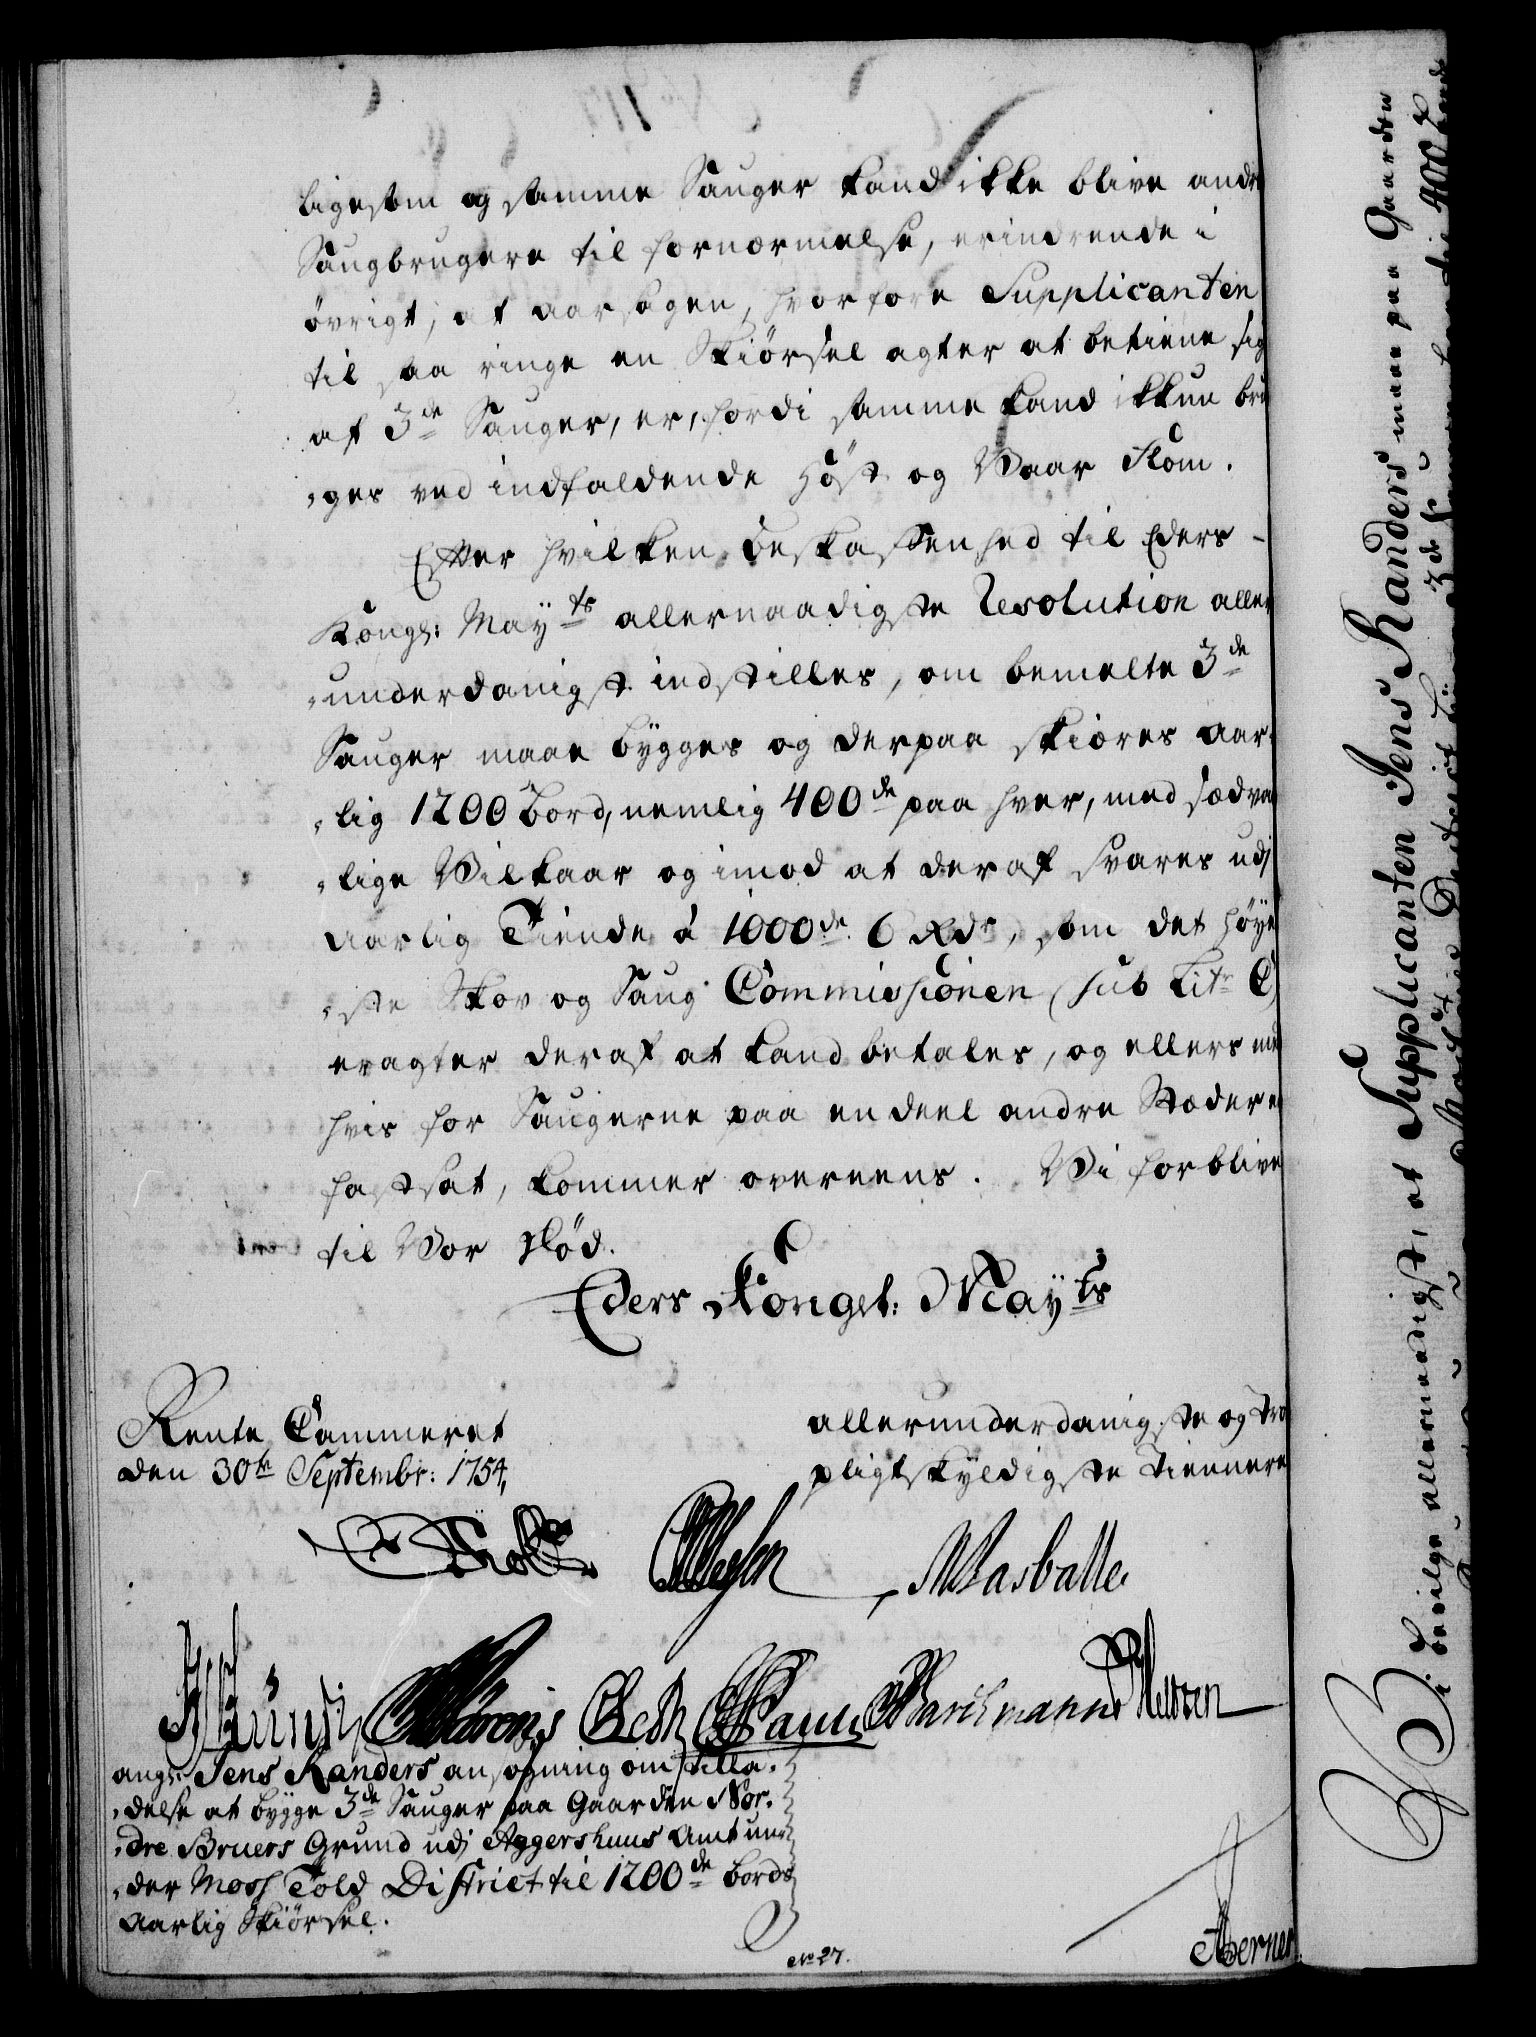 ligesom og samme Sauger kand ikke blive andre
Saugbrugere til fornærmelse, erindrende i
övrigt, at aarsagen, hvorfore Supplicanten
til saa ringe en Skiörsel agter at betiene sig
af 3de Sauger, er, fordi samme kand ikkun bru
„ges ved indfaldende Höst og Vaar Flom.
Efter hvilken beskaffenhed til Eders
Kongl: Mayts allernaadigste Resolution aller
„underdanigst indstilles, om bemelte 3de
Sauger maae bÿgges og derpaa skiæres aar
„lig 1200 Bord, nemlig 400de paa hver, med sædvan
„lige Vilkaar og imod at deraf svares udj
aarlig Tiende à 1000de 6 Rdr, som det höye
„ste Skov og Saug Commissionen (sub Litr C)
eragter deraf at kand betales, og ellers med
hvis for Saugerne paa en deel andre Stæder er
fastsat, kommer overeens. Vi forblive
til Vor Död.
Eders Kongel: Mayts
Rente Cammeret
den 30te Septembr: 1754,
allerunderdanigste og tro
pligtskÿldigste Tiennere
Masballe
angl: Jens Randers ansøgning om tilla
„delse at bygge 3de Sauger paa Gaarden Nor
„dre Bruers Grund udj Aggershuus Amt un
„der Moss Told District til 1200de bords
aarlig Skiörsel.
No 27.
Vi bevilge allernaadigst, at Supplicanten Jens Randers maae paa Gaarden